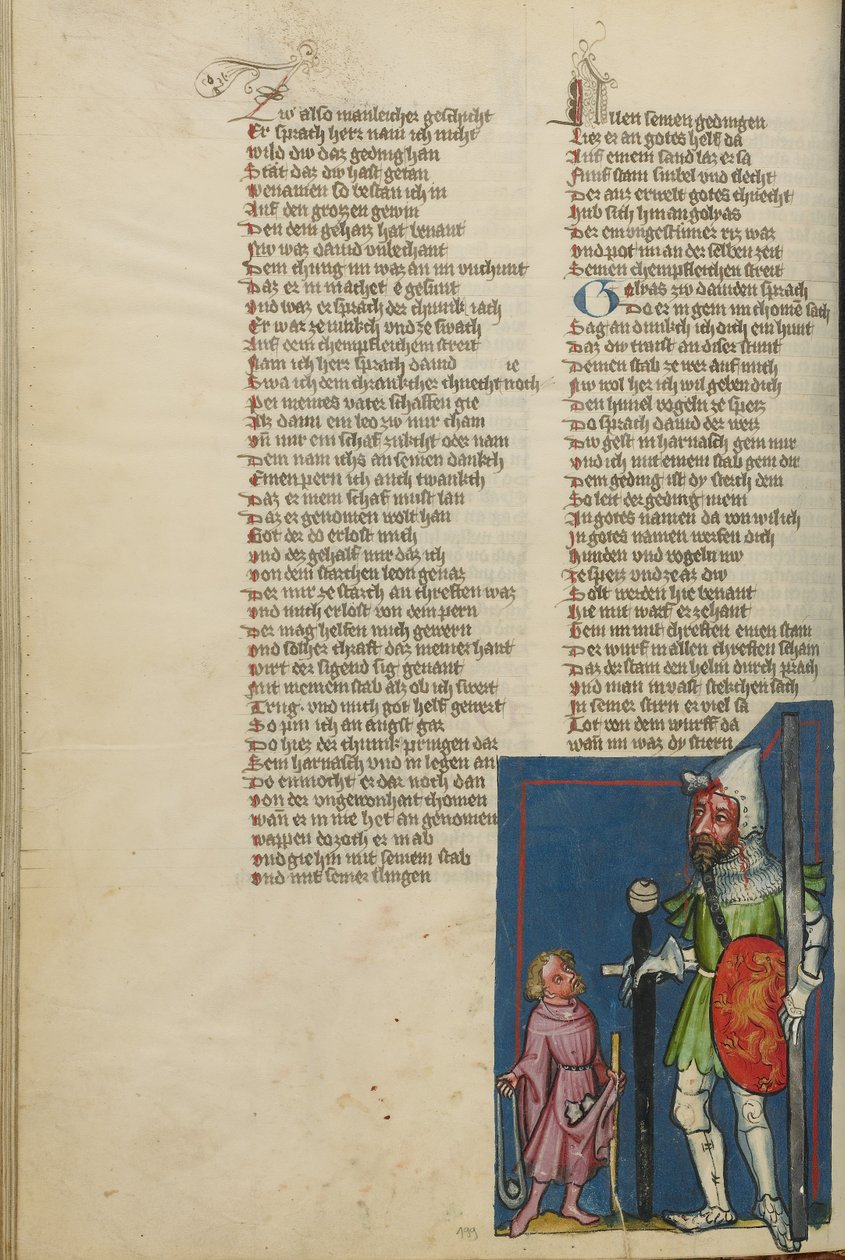 Zw also manleicher geschicht
Er sprach herr nain ich nicht
Wild dw daz geding han
Stat daz dw hast getan
Wenamen so bestan ich in
Auf den grozzen gewin
Den dem gehaiz hat benant
Nw waz dauid vnbechant
Dem chung im waz an im vnchunt
Daz er in machet e gesunt
Vnd waz er sprach der chunik iach
Er war ze iunkch vnd ze swach
Auf dem chempfleichem streit
Nain ich herr sprach dauid
ie
Swa ich dem chrankcher chnecht noch
Pei meines vater schaffen gie
Alz dann ein leo zw mir cham
Vn mir ein schaf zukcht oder nam
Dem nam ichs an seinen dankch
Einen pern ich auch twankch
Daz er mein schaf must lan
Daz er genomen wolt han
Got der do erlost mich
Vnd der gehalf mir daz ich
Von dem starchen leon genaz
Der mir ze starch an chreften waz
Vnd mich erlost von dem pern
Der mag helfen mich gewern
Vnd solher chraft daz meiner hant
Wirt der sigend sig genant
Mit meinem stab alz ob ich swert
Trug. vnd mich got helf gewert
So pin ich an angst gar
Do hiez der chunik pringen dar
Sein harnasch vnd in legen an
Do enmocht er dar noch dan
Von der vngewonhait chomen
Wan er in nie het an genomen
Wappen do zoch er in ab
Vnd gie hin mit seinem stab
Vnd mit seiner slingen
Allen seinen gedingen
Liez er an gotes helf da
Auf einem sand laz er sa
Funf stain sinbel vnd slecht
Der auz erwelt gotes chnecht
Hub sich hin an golyas
Der ein vngestumer riz waz
Vnd pot im an der selben zeit
Seinen chempfleichen streit
Golyas zw dauiden sprach
Do er in gein im chomen sach
Sag an dunkch ich dich ein hunt
Daz dw traist an diser stunt
Deinen stab ze wer auf mich
Nw wol her ich wil geben dich
Den himel vogeln ze speiz
Do sprach dauid der weiz
Dw gest in harnasch gein mir
Vnd ich mit einem stab gein dir
Dein geding ist dy sterch dein
So leit der geding mein
An gotes namen da von wil ich
In gotes namen werfen dich
Hunden vnd vogeln nw
Ze speiz vnd ze az dw
Solt werden hie benant
Hie mit warf er zehant
Gein im mit chreften einen stain
Der wurf in allen chreften schain
Daz der stain den helm durch prach
Vnd man in vast stekchen sach
In seiner stirn er viel sa
Tot von dem wurff da
Wan im waz dy stiern
199